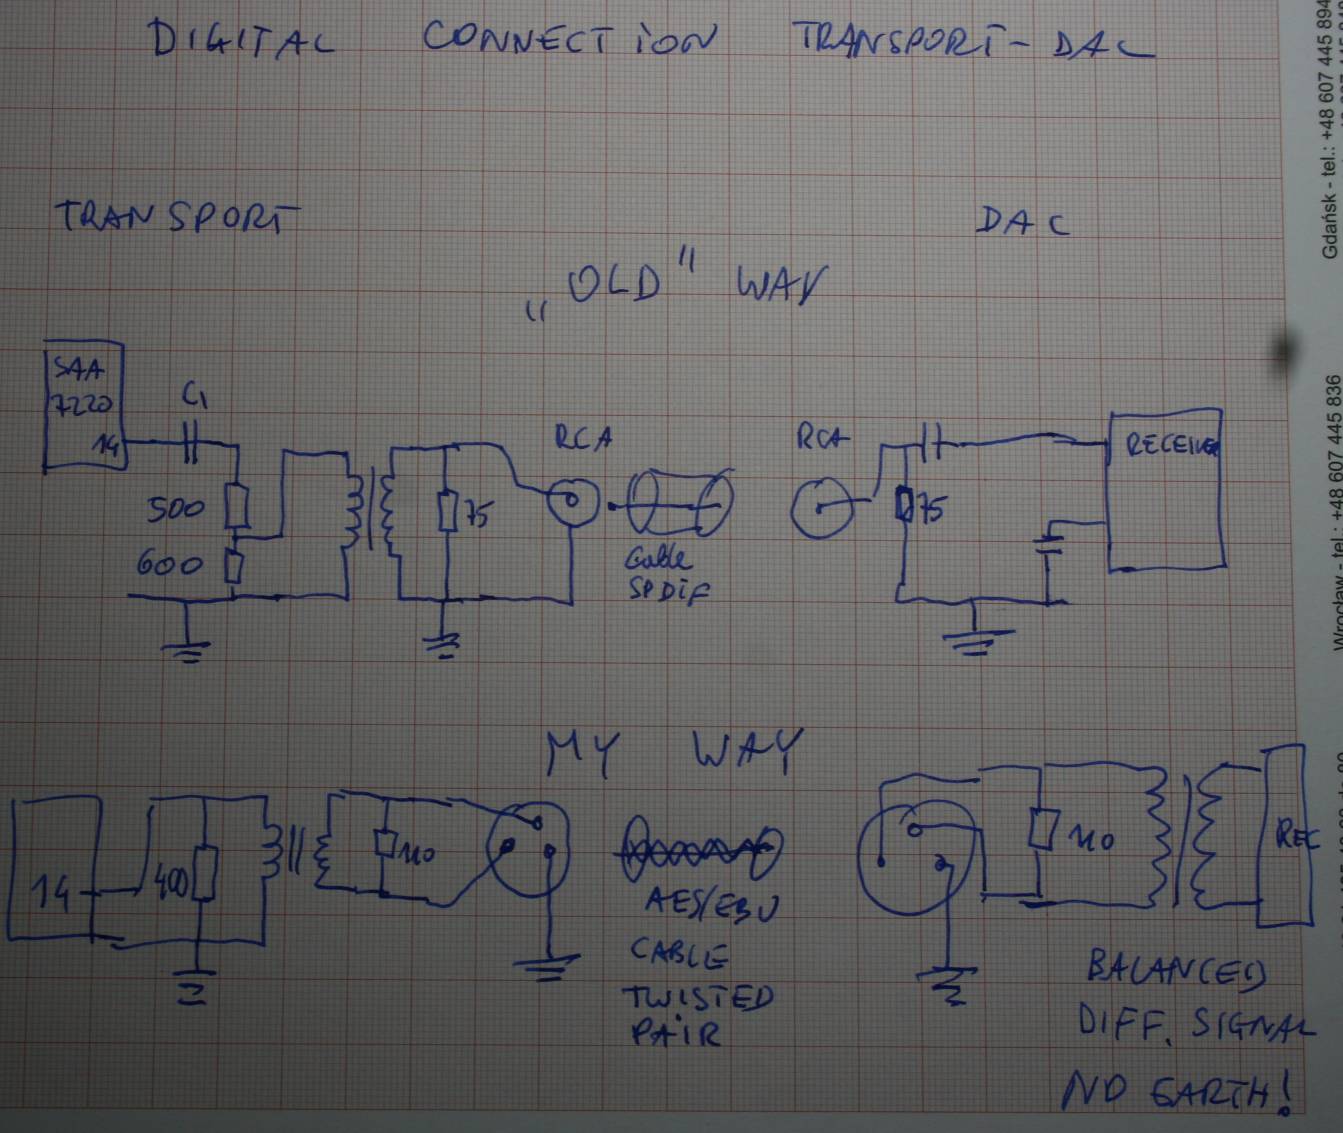 DIGITAL CONNECTION TRANSPORT-DAC
TRANSPORT
DAC
„OLD" WAY
SAA
7220
14
C1
500
600
75
RCA
Cable
SPDiF
RCA
75
RECEIVER
MY WAY
14
400
110
AES/EBU
CABLE
TWISTED
PAiR
110
REC
BALANCED
DIFF. SIGNAL
NO EARTH!
Gdańsk - tel.: +48 607 445 894
Wrocław - tel. +48 607 445 836